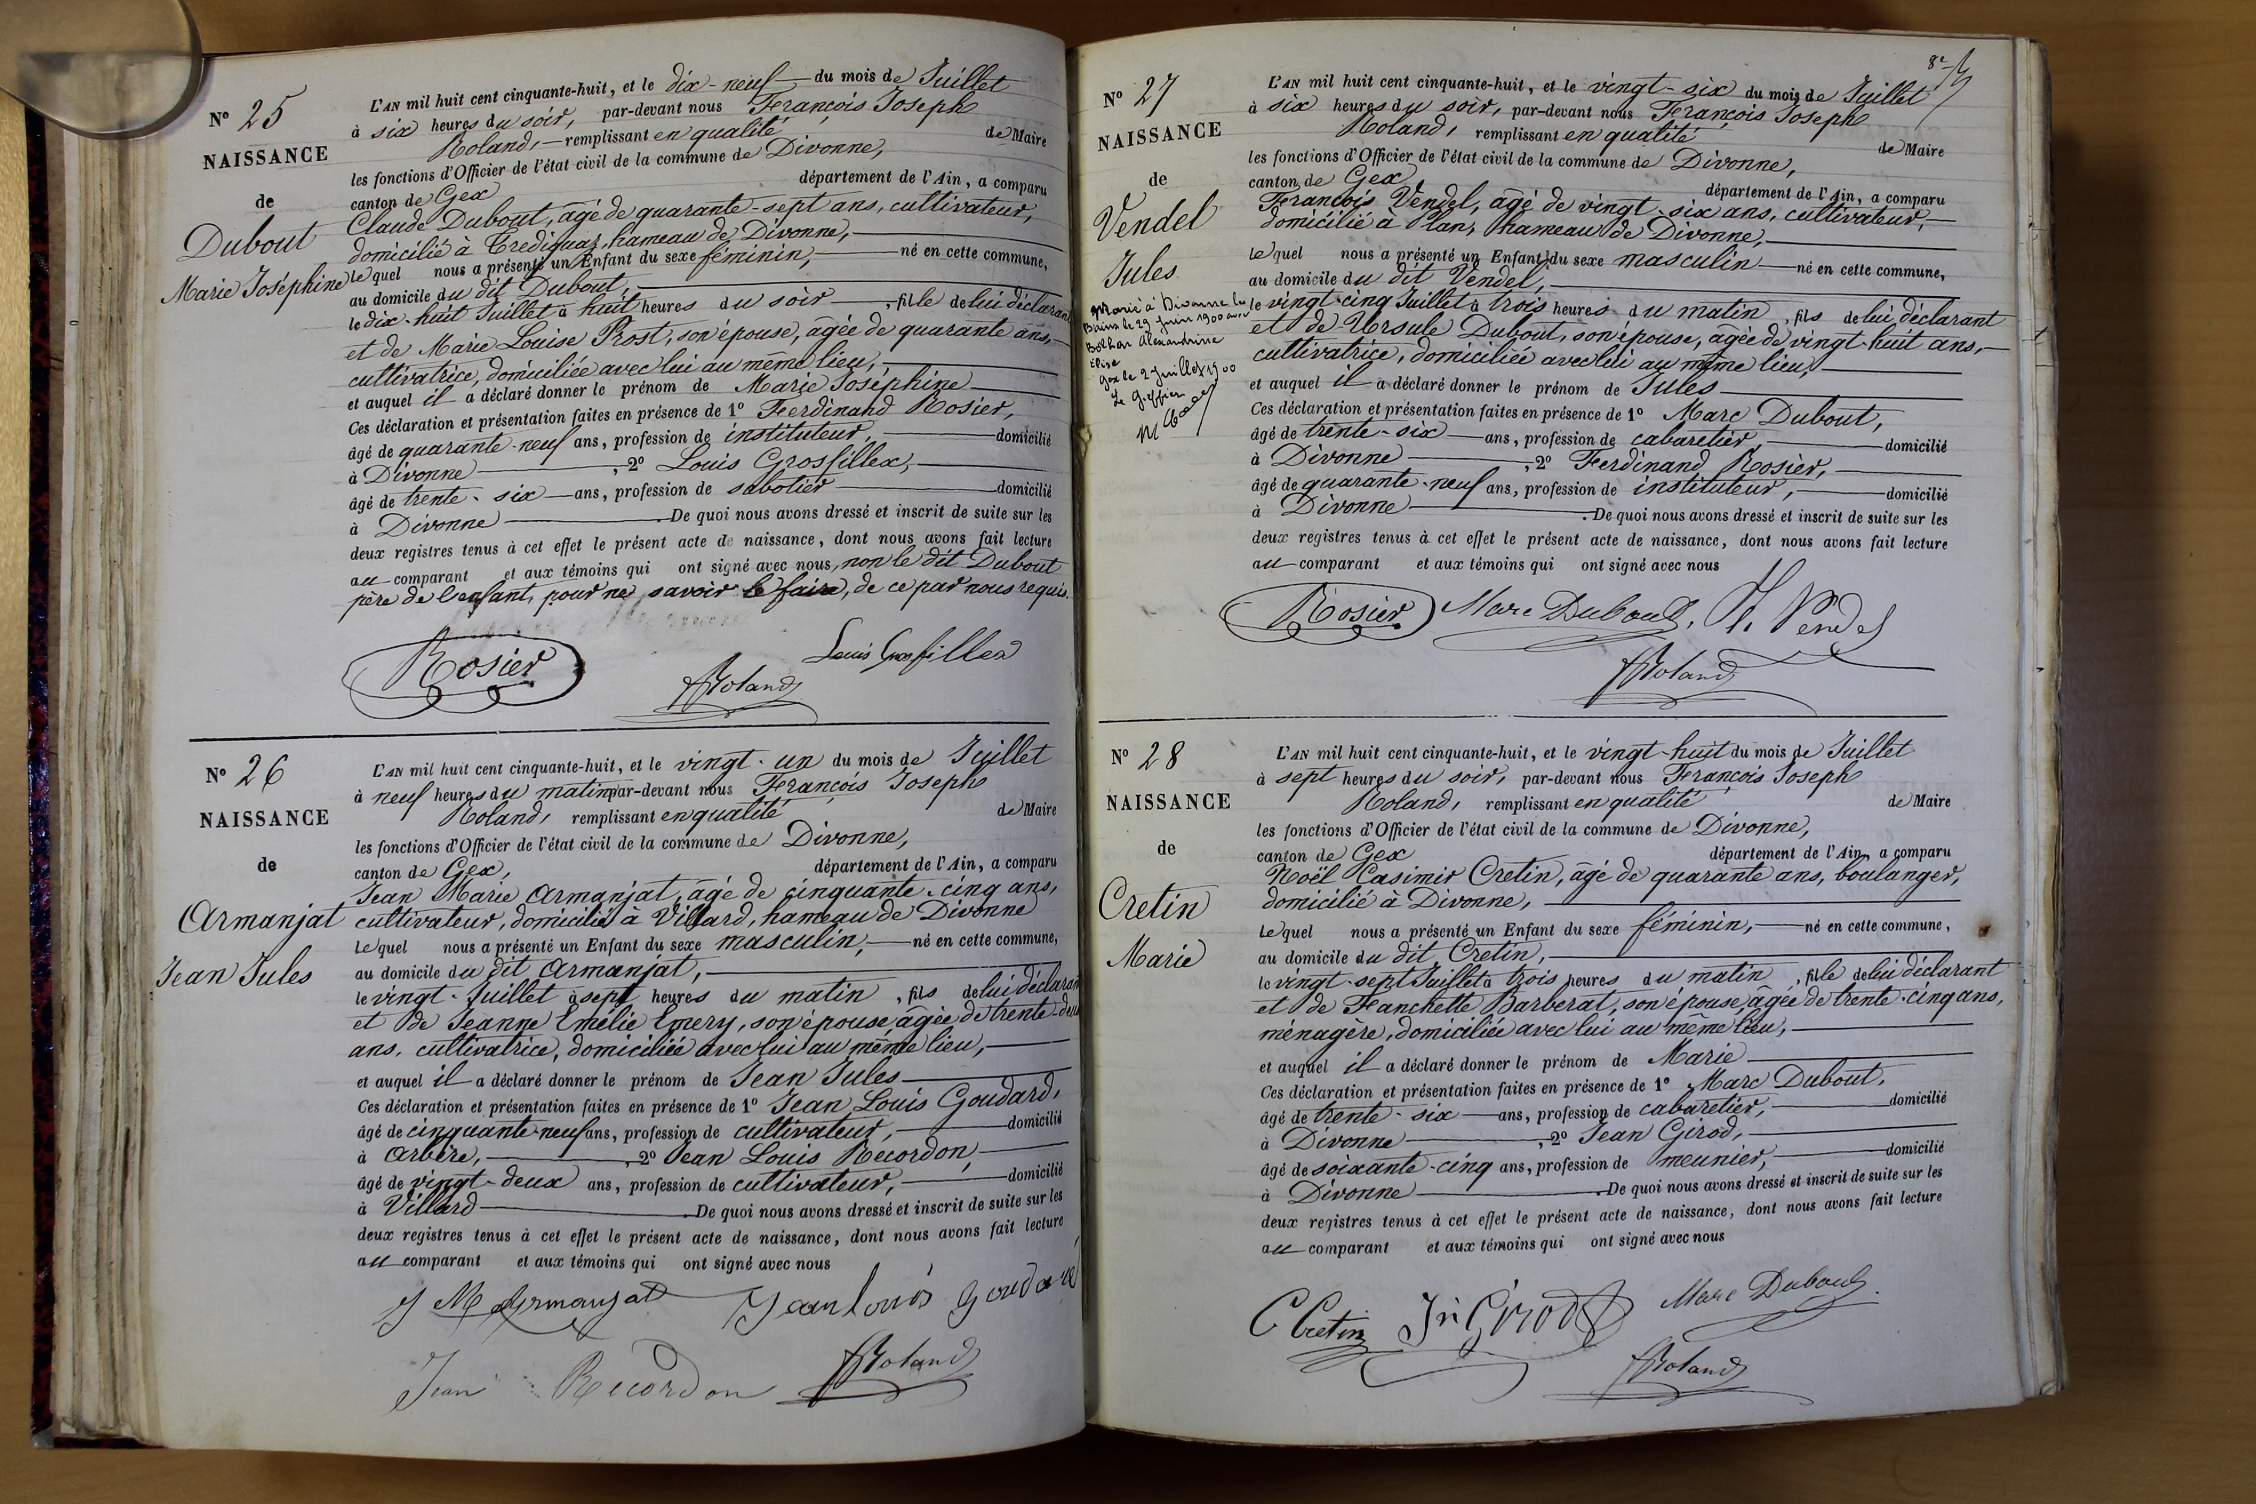 N° 25
NAISSANCE
de
Dubout
Marie Joséphine
L'AN mil huit cent cinquante-huit, et le dix-neuf du mois de Juillet
à six heures du soir, par-devant nous François Joseph
Roland, remplissant en qualité de Maire
les fonctions d'Officier de l'état civil de la commune de Divonne,
canton de Gex département de l'Ain, a comparu
Claude Dubout, âgé de quarante-sept ans, cultivateur,
domicilié à hameau de Divonne,
Lequel nous a présenté un Enfant du sexe féminin, né en cette commune,
au domicile du dit Dubout,
le dix-huit Juillet à huit heures du soir, fille de lui déclarant
et de Marie Louise Prost, son épouse, âgée de quarante ans,
cultivatrice, domiciliée avec lui au même lieu,
et auquel il a déclaré donner le prénom de Marie Joséphine
Ces déclaration et présentation faites en présence de 1° Ferdinand Rosier,
âgé de quarante-neuf ans, profession de instituteur, domicilié
à Divonne, 2° Louis Grosfillex,
âgé de trente-six ans, profession de sabotier domicilié
à Divonne. De quoi nous avons dressé et inscrit de suite sur les
deux registres tenus à cet effet le présent acte de naissance, dont nous avons fait lecture
au comparant et aux témoins qui ont signé avec nous, non le dit Dubout
père de l'enfant, pour ne savoir le faire, de ce par nous requis.
Rosier
Louis Grosfillex
Roland
N° 26
NAISSANCE
de
Armanjat
Jean Jules
L'AN mil huit cent cinquante-huit, et le vingt-un du mois de Juillet
à neuf heures du matin par-devant nous François Joseph
Roland, remplissant en qualité de Maire
les fonctions d'Officier de l'état civil de la commune de Divonne,
canton de Gex, département de l'Ain, a comparu
Jean Marie Armanjat, âgé de cinquante-cinq ans,
cultivateur, domicilié à Villard, hameau de Divonne
Lequel nous a présenté un Enfant du sexe masculin, né en cette commune,
au domicile du dit Armanjat,
le vingt-Juillet à sept heures du matin, fils de lui déclarant
et de Jeanne Emélie Emery, son épouse, âgée de trente-deux
ans, cultivatrice, domiciliée avec lui au même lieu,
et auquel il a déclaré donner le prénom de Jean Jules
Ces déclaration et présentation faites en présence de 1° Jean Louis Goudard,
âgé de cinquante-neuf ans, profession de cultivateur, domicilié
à Arbère, 2° Jean Louis Recordon,
âgé de vingt-deux ans, profession de cultivateur, domicilié
à Villard. De quoi nous avons dressé et inscrit de suite sur les
deux registres tenus à cet effet le présent acte de naissance, dont nous avons fait lecture
au comparant et aux témoins qui ont signé avec nous
J M Armanjat
Jean Louis Goudard
Jean Recordon
Roland
8e
N° 27
NAISSANCE
de
Vendel
Jules
Marié à Divonne les
Bains le 29 Juin 1900 avec
Alexandrine
Elise
Gex le 2 Juillet 1900
Le Greffier
L'AN mil huit cent cinquante-huit, et le vingt-six du mois de Juillet
à six heures du soir, par-devant nous François Joseph
Roland, remplissant en qualité de Maire
les fonctions d'Officier de l'état civil de la commune de Divonne,
canton de Gex département de l'Ain, a comparu
François Vendel, âgé de vingt-six ans, cultivateur,
domicilié à Plan, hameau de Divonne,
Lequel nous a présenté un Enfant du sexe masculin né en cette commune,
au domicile du dit Vendel,
le vingt-cinq Juillet à trois heures du matin, fils de lui déclarant
et de Ursule Dubout, son épouse, âgée de vingt-huit ans,
cultivatrice, domiciliée avec lui au même lieu,
et auquel il a déclaré donner le prénom de Jules
Ces déclaration et présentation faites en présence de 1° Marc Dubout,
âgé de trente-six ans, profession de cabaretier, domicilié
à Divonne, 2° Ferdinand Rosier,
âgé de quarante-neuf ans, profession de instituteur, domicilié
à Divonne. De quoi nous avons dressé et inscrit de suite sur les
deux registres tenus à cet effet le présent acte de naissance, dont nous avons fait lecture
au comparant et aux témoins qui ont signé avec nous
Rosier Marc Dubout, Vendel
Roland
N° 28
NAISSANCE
de
Cretin
Marie
L'AN mil huit cent cinquante-huit, et le vingt-huit du mois de Juillet
à sept heures du soir, par-devant nous François Joseph
Roland, remplissant en qualité de Maire
les fonctions d'Officier de l'état civil de la commune de Divonne,
canton de Gex département de l'Ain, a comparu
Noël Casimir Cretin, âgé de quarante ans, boulanger,
domicilié à Divonne,
Lequel nous a présenté un Enfant du sexe féminin, né en cette commune,
au domicile du dit Cretin,
le vingt-sept Juillet à trois heures du matin, fille de lui déclarant
et de Fanchette Barberat, son épouse, âgée de trente-cinq ans,
ménagère, domiciliée avec lui au même lieu,
et auquel il a déclaré donner le prénom de Marie
Ces déclaration et présentation faites en présence de 1° Marc Dubout,
âgé de trente-six ans, profession de cabaretier, domicilié
à Divonne, 2° Jean Girod,
âgé de soixante-cinq ans, profession de meunier, domicilié
à Divonne. De quoi nous avons dressé et inscrit de suite sur les
deux registres tenus à cet effet le présent acte de naissance, dont nous avons fait lecture
au comparant et aux témoins qui ont signé avec nous
C Cretin Jn Girod Marc Dubout
Roland